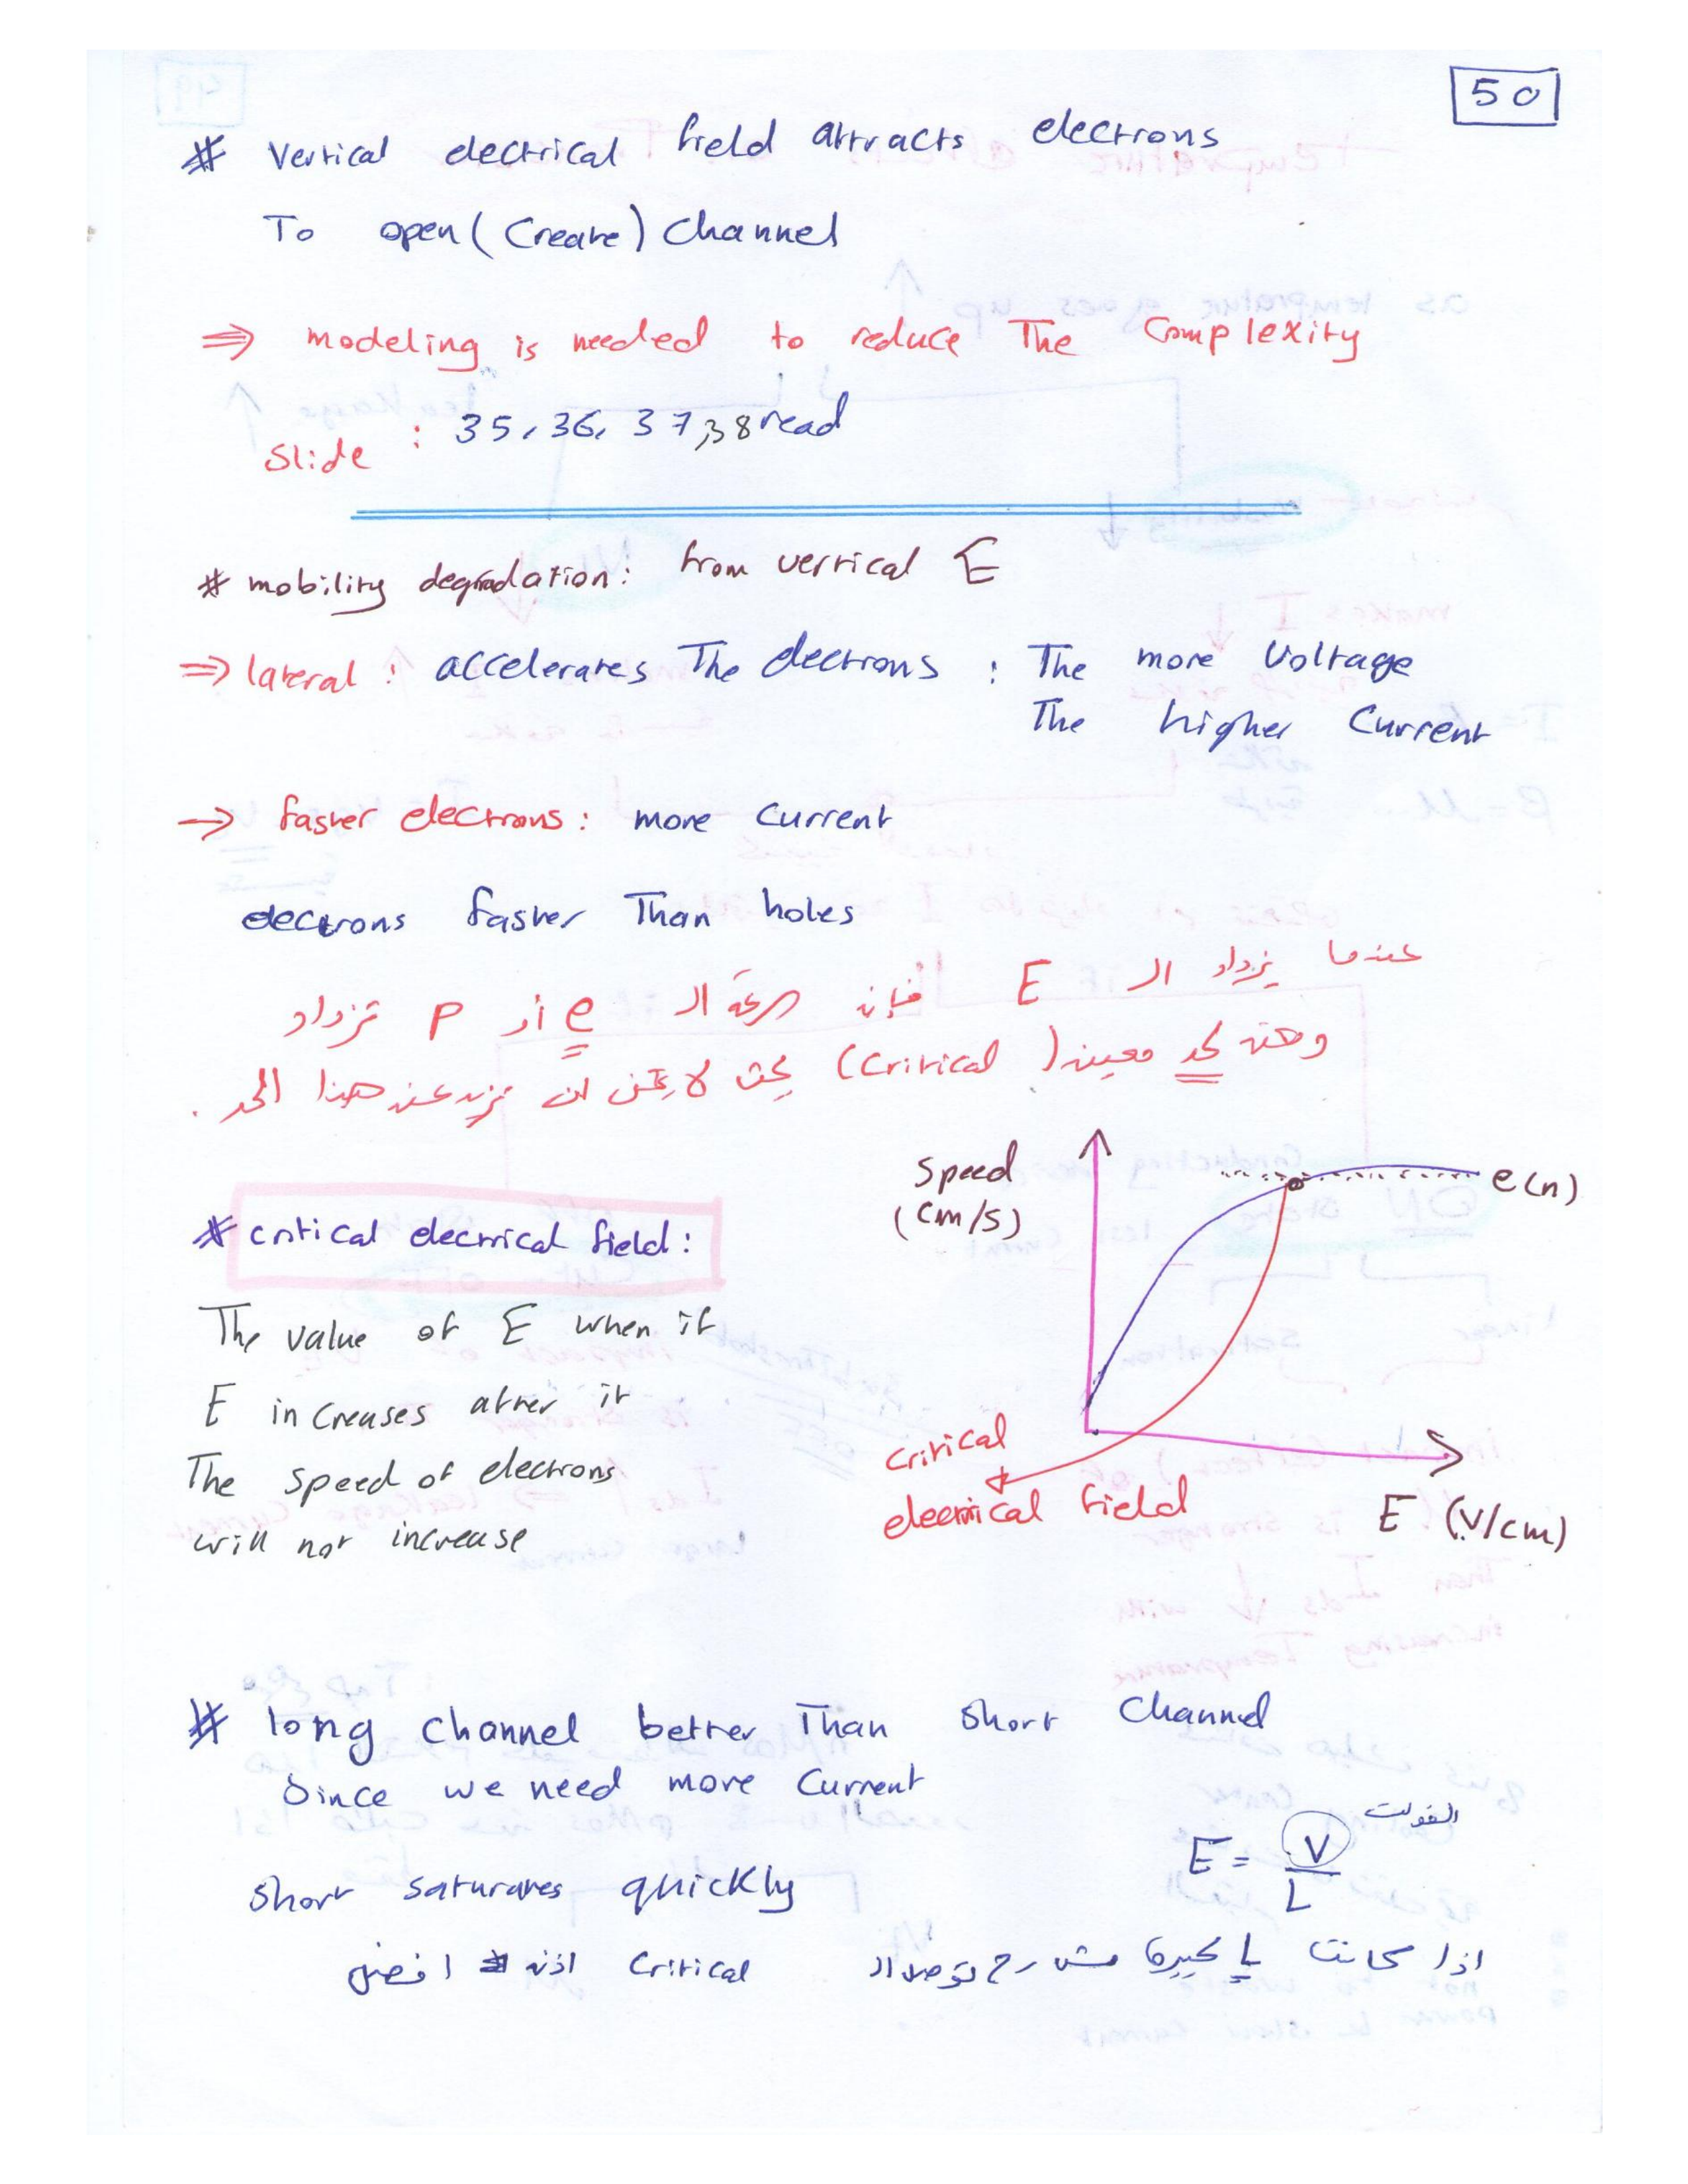 50
# Vertical electrical field attracts electrons
To open (Create) Channel
⇒ modeling is needed to reduce The Complexity
Slide : 35, 36, 37, 38 read
# mobility degradation: from vertical E
⇒ lateral : accelerates The electrons : The more Voltage
The higher Current
→ faster electrons: more Current
electrons faster Than holes
عندما يزداد ال E فإن سرعة ال e أو P تزداد
لحد معين (Critical) بحيث لا يمكن ان تزيد عن هذا الحد .
Speed
(cm/s)
e(n)
# critical electrical field:
The value of E when if
E increases after it
The speed of electrons
will not increase
Critical
electrical field
E (V/cm)
# long channel better Than short Channel
Since we need more Current
الفولت
E = V/L
short saturates quickly
اذا كانت L كبيرة مش رح توصل ال Critical اذن افضل